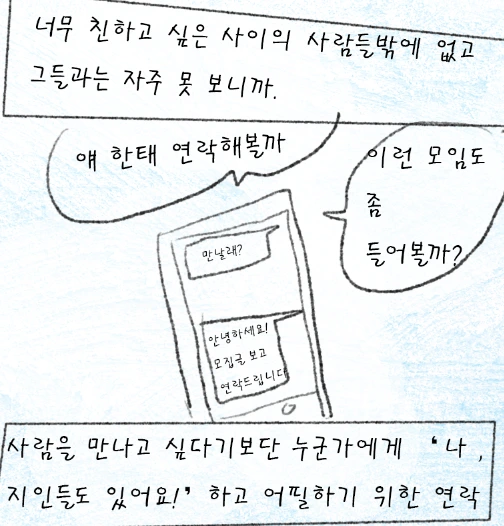 너무 친하고 싶은 사이의 사람들밖에 없고
그들과는 자주 못 보니까.
얘 한태 연락해볼까
이런 모임도
좀
들어볼까?
만날래?
안녕하세요!
모집글 보고
연락드립니다
사람을 만나고 싶다기보단 누군가에게 '나,
지인들도 있어요!' 하고 어필하기 위한 연락